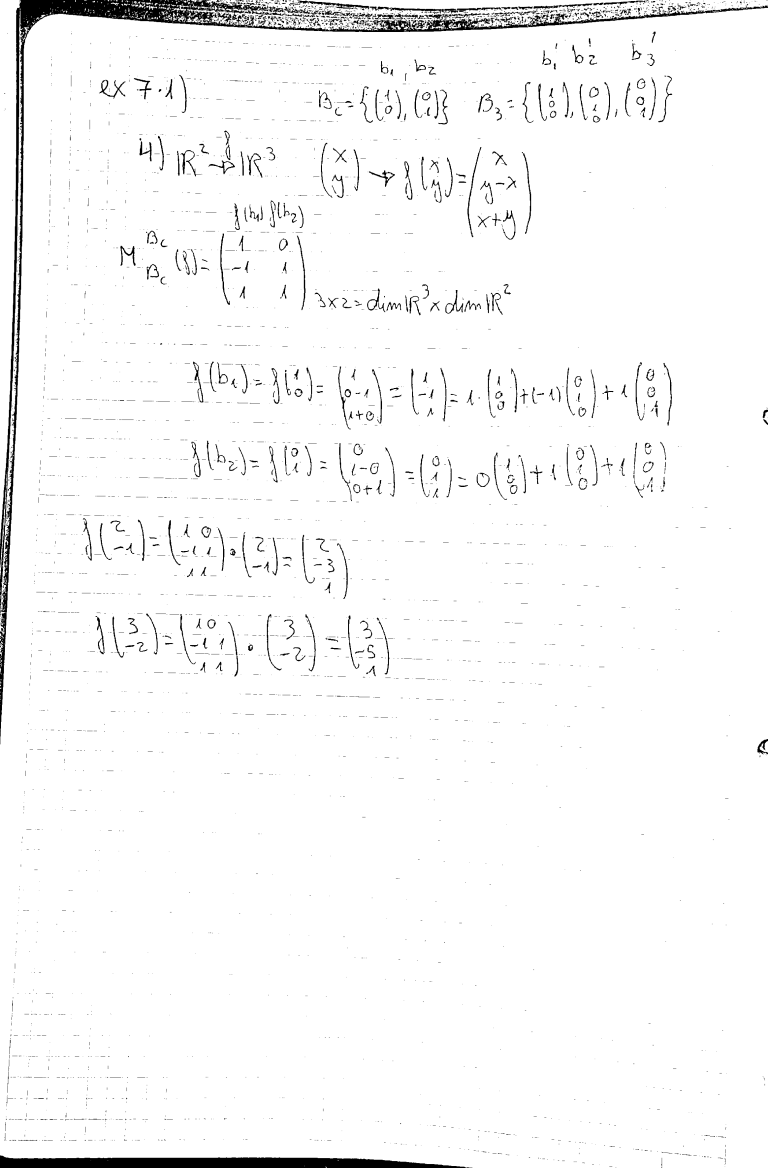 b₁, b₂ b₁' b₂' b₃'
ex 7.1) B_c = {(1 0), (0 1)} B_3 = {(1 0 0), (0 1 0), (0 0 1)}
4) ℝ² →^f ℝ³ (x y) → f(x y) = (x y-x x+y)
f(b₁) f(b₂)
M^{B_c}_{B_c}(f) = (1 0 -1 1 1 1) 3x2 = dim ℝ³ x dim ℝ²
f(b₁) = f(1 0) = (1 0-1 1+0) = (1 -1 1) = 1·(1 0 0) + (-1)(0 1 0) + 1(0 0 1)
f(b₂) = f(0 1) = (0 1-0 0+1) = (0 1 1) = 0(1 0 0) + 1(0 1 0) + 1(0 0 1)
f(2 -1) = (1 0 -1 1 1 1)·(2 -1) = (2 -3 1)
f(3 -2) = (1 0 -1 1 1 1)·(3 -2) = (3 -5 1)